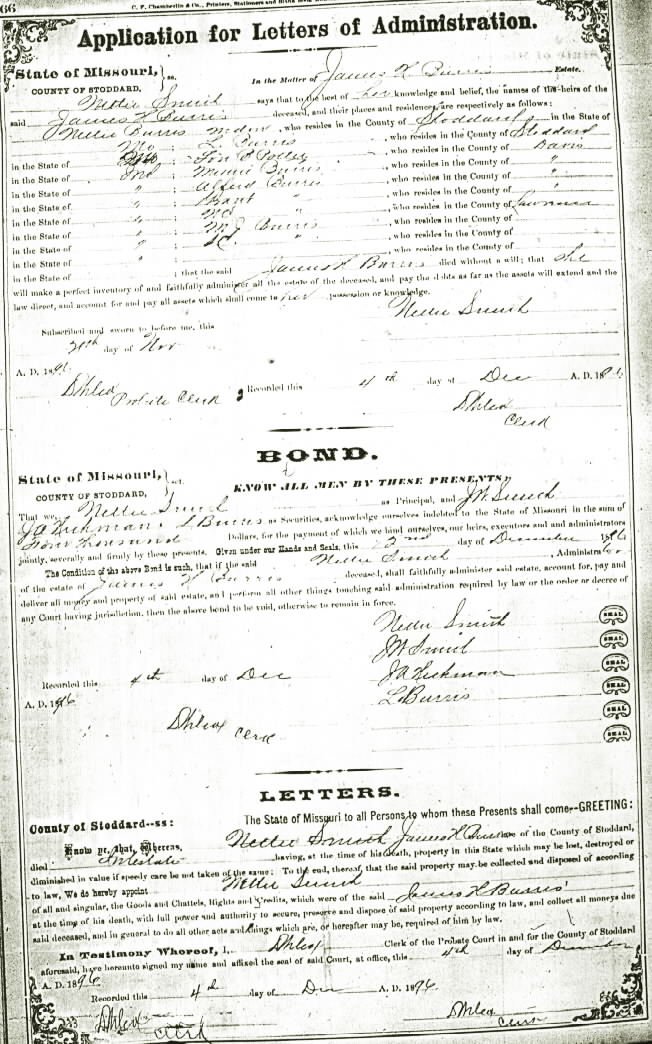 66
C. F. Chamberlin & Co., Printers, Stationers and
Application for Letters of Administration.
State of Missouri,
COUNTY OF STODDARD, } ss.
In the Matter of James H Burris Estate.
Nettie Smith says that to the best of her knowledge and belief, the names of the heirs of the
said James H Burris deceased, and their places and residences, are respectively as follows:
Nettie Burris, who resides in the County of Stoddard in the State of
Mo : L Burris, who resides in the County of Stoddard
in the State of, who resides in the County of Davis
in the State of Ind : Minnie Burris, who resides in the County of "
in the State of " : Alfred Burris, who resides in the County of "
in the State of " : " , who resides in the County of "
in the State of " : " , who resides in the County of Lawrence
in the State of " : M J Burris, who resides in the County of
in the State of " : " , who resides in the County of
in the State of " :, who resides in the County of
in the State of ; that the said James H Burris died without a will; that she
will make a perfect inventory of and faithfully administer all the estate of the deceased, and pay the debts as far as the assets will extend and the
law direct, and account for and pay all assets which shall come to her possession or knowledge.
Nettie Smith
Subscribed and sworn to before me, this
day of Nov
A. D. 1896
Probate Clerk
Recorded this 4th day of Dec A. D. 1896
Clerk
BOND.
State of Missouri,
COUNTY OF STODDARD, } sct.
KNOW ALL MEN BY THESE PRESENTS,
That we, Nettie Smith as Principal, and J W Smith
J A Hickman L Burris as Securities, acknowledge ourselves indebted to the State of Missouri in the sum of
Four Thousand Dollars, for the payment of which we bind ourselves, our heirs, executors and and administrators
jointly, severally and firmly by these presents. Given under our Hands and Seals, this 2nd day of December 1896
The Condition of the above Bond is such, that if the said Nettie Smith, Administrator
of the estate of James H Burris deceased, shall faithfully administer said estate, account for, pay and
deliver all money and property of said estate, and perform all other things touching said administration required by law or the order or decree of
any Court having jurisdiction, then the above bond to be void, otherwise to remain in force.
Nettie Smith SEAL
J W Smith SEAL
J A Hickman SEAL
L Burris SEAL
SEAL
SEAL
Recorded this 4th day of Dec
A. D. 1896
Clerk
LETTERS.
The State of Missouri to all Persons to whom these Presents shall come--GREETING:
County of Stoddard--ss:
Know ye, that, Whereas, Nettie Smith James H Burris of the County of Stoddard,
died Intestate having, at the time of his death, property in this State which may be lost, destroyed or
diminished in value if speedy care be not taken of the same; To the end, thereof, that the said property may be collected and disposed of according
to law, We do hereby appoint Nettie Smith
of all and singular, the Goods and Chattels, Rights and Credits, which were of the said James H Burris
at the time of his death, with full power and authority to secure, preserve and dispose of said property according to law, and collect all moneys due
said deceased, and in general to do all other acts and things which are, or hereafter may be, required of him by law.
In Testimony Whereof, I, Clerk of the Probate Court in and for the County of Stoddard
aforesaid, have hereunto signed my name and affixed the seal of said Court, at office, this 4th day of December
A. D. 1896
Recorded this 4th day of Dec A. D. 1896.
Clerk
Clerk